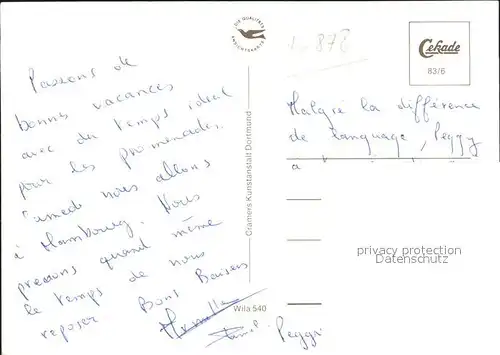 Passons de
bonnes vacances
avec du temps idéal
pour les promenades.
Samedi nous allons
à Hambourg. Nous
prenons quand même
le temps de nous
reposer Bons Baisers
Peggy
DIE QUALITÄTS
ANSICHTSKARTE
Cramers Kunstanstalt Dortmund
Wila 540
878
Cekade
83/6
Malgré la différence
de language, Peggy
privacy protection
Datenschutz